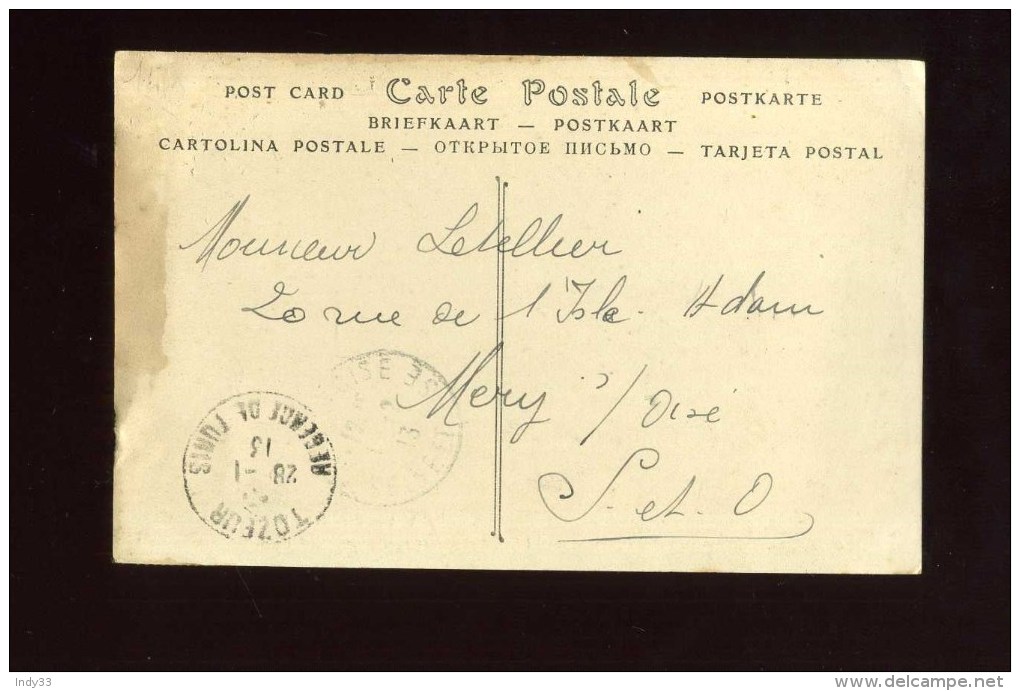 POST CARD Carte Postale POSTKARTE
BRIEFKAART — POSTKAART
CARTOLINA POSTALE — ОТКРЫТОЕ ПИСЬМО — TARJETA POSTAL
Monsieur Letellier
20 rue de l'Isle-Adam
Mery s/ Oise
S-et-O
TOZEUR
28 -1
13
REGENCE DE TUNIS
13
Indy33
delcampe.net